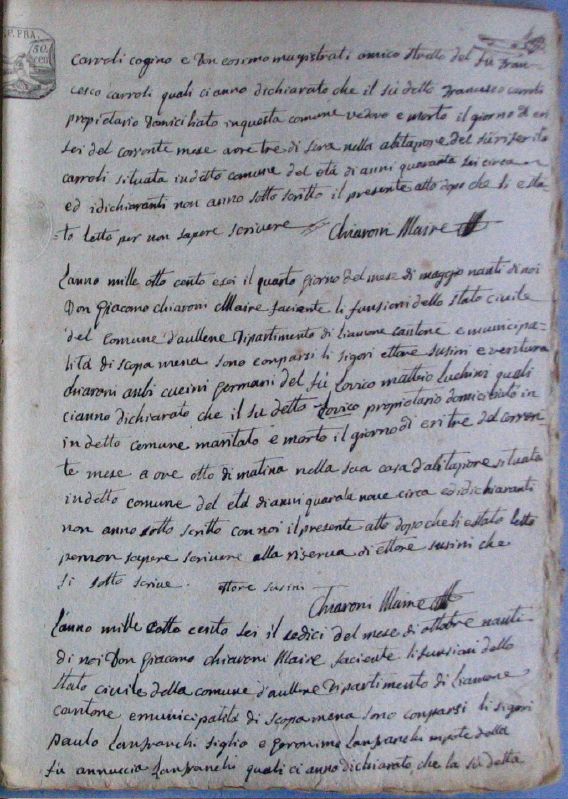 P. FRA.
50.
cen
carroli cogino e Don cosimo magistrati amico stretto del fù Fran-
cesco carroli quali ci anno dichiarato che il sù detto Francesco carroli
propietario Domiciliato in questa comune vedovo e morto il giorno di eri
sei del corrente mese a ore tre di sera nella abitazione del sù riferito
carroli situata in detto comune del età di anni quaranta sei circa
ed i dichiaranti non anno sotto scritto il presente atto dopo che li e sta-
to letto per non sapere scrivere Chiaroni Maire
L'anno mille otto cento e sei il quarto giorno del mese di maggio nanti di noi
Don Giacomo chiaroni Maire faciente li funsioni dello stato civile
del comune d'aullene Dipartimento di Liamone cantone e municipa-
lità di scopa mena sono conparsi li sigori ettore susini e ventura
chiaroni anbi cucini germani del fù Lovico matteio Luchini quali
ci anno dichiarato che il sù detto Lovico propietario domiciliato in
in detto comune maritato e morto il giorno di eri tre del corren-
te mese a ore otto di matina nella sua casa d'abitazione situata
in detto comune del età di anni quarata nove circa ed i dichiaranti
non anno sotto scritto con noi il presente atto dopo che li e stato letto
per non sapere scrivere alla riserva di ettore susini che
si sotto scrive. ettore susini
Chiaroni Maire
L'anno mille otto cento sei il sedici del mese di ottobre nanti
di noi Don Giacomo chiaroni Maire faciente li funsioni dello
stato civile della comune d'aullene Dipartimento di Liamone
cantone e municipalità di scopa mena sono conparsi li sigori
paulo Lanfranchi figlio e Geronimo Lanfranchi nipote della
fù annuccia Lanfranchi quali ci anno dichiarato che la sù detta